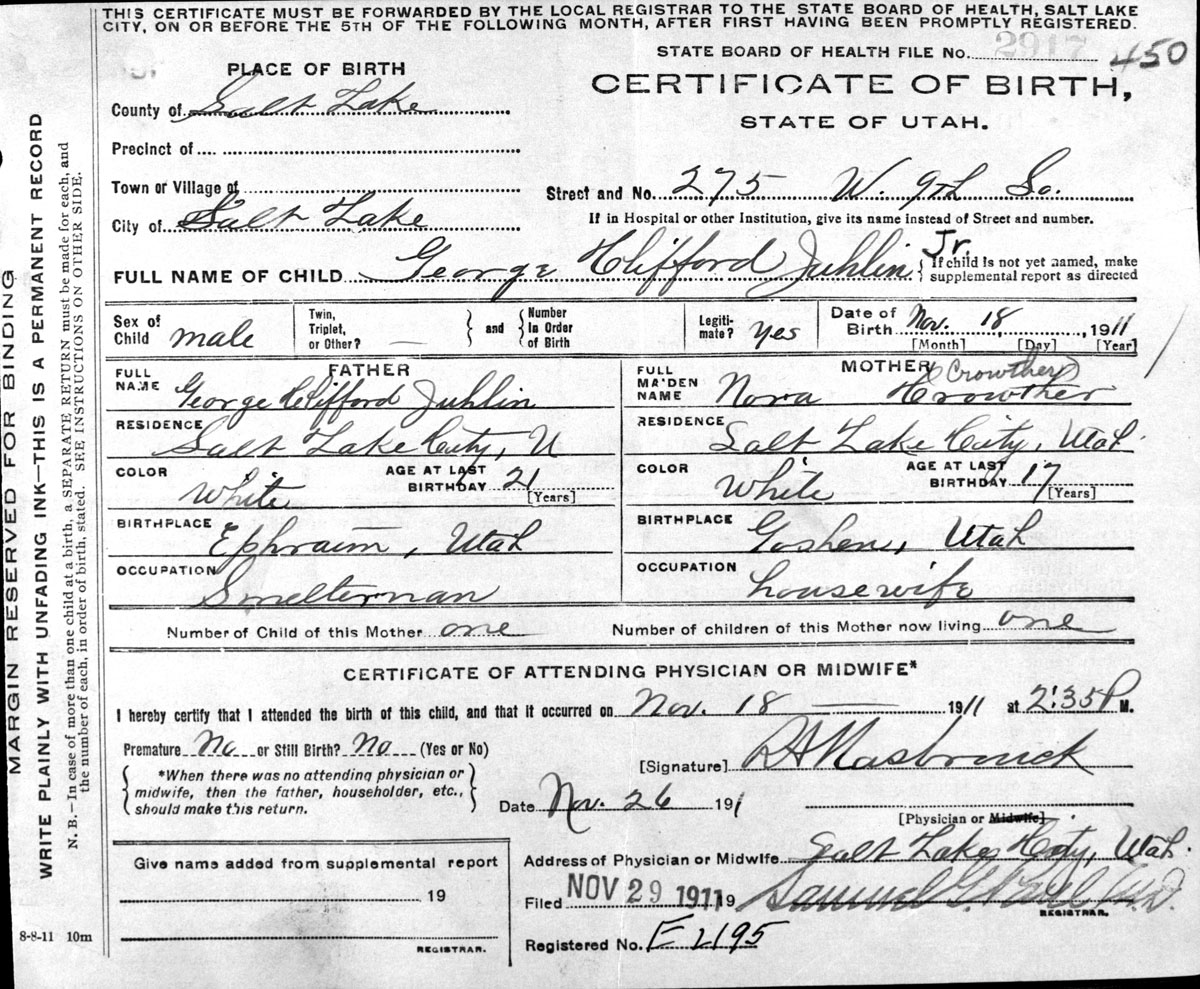 THIS CERTIFICATE MUST BE FORWARDED BY THE LOCAL REGISTRAR TO THE STATE BOARD OF HEALTH, SALT LAKE
CITY, ON OR BEFORE THE 5TH OF THE FOLLOWING MONTH, AFTER FIRST HAVING BEEN PROMPTLY REGISTERED.
STATE BOARD OF HEALTH FILE No. 2917 450
PLACE OF BIRTH
CERTIFICATE OF BIRTH,
STATE OF UTAH.
County of Salt Lake
Precinct of
Town or Village of
Street and No. 275 W. 9th So.
City of Salt Lake
If in Hospital or other Institution, give its name instead of Street and number.
FULL NAME OF CHILD George Clifford Juhlin Jr.
If child is not yet named, make
supplemental report as directed
Sex of Child male
Twin, Triplet, or Other? —
and
Number In Order of Birth
Legiti-mate? yes
Date of Birth Nov. 18, 1911
[Month] [Day] [Year]
FATHER
FULL NAME George Clifford Juhlin
RESIDENCE Salt Lake City, U
COLOR White
AGE AT LAST BIRTHDAY 21 [Years]
BIRTHPLACE Ephraim, Utah
OCCUPATION Smelterman
MOTHER
FULL MAIDEN NAME Nora Crowther (Crowther)
RESIDENCE Salt Lake City, Utah
COLOR White
AGE AT LAST BIRTHDAY 17 [Years]
BIRTHPLACE Goshen, Utah
OCCUPATION housewife
Number of Child of this Mother one
Number of children of this Mother now living one
CERTIFICATE OF ATTENDING PHYSICIAN OR MIDWIFE*
I hereby certify that I attended the birth of this child, and that it occurred on Nov. 18 — 1911 at 2:35 P M.
Premature No or Still Birth? No (Yes or No)
*When there was no attending physician or
midwife, then the father, householder, etc.,
should make this return.
[Signature] R A Hasbrouck
Date Nov. 26 191
[Physician or Midwife]
Give name added from supplemental report
19
REGISTRAR.
Address of Physician or Midwife Salt Lake City, Utah.
Filed NOV 29 1911 19 Samuel G. Paul M.D.
REGISTRAR.
Registered No. E 2195
8-8-11 10m
MARGIN RESERVED FOR BINDING
WRITE PLAINLY WITH UNFADING INK—THIS IS A PERMANENT RECORD
N. B.—In case of more than one child at a birth, a SEPARATE RETURN must be made for each, and
the number of each, in order of birth, stated. SEE INSTRUCTIONS ON OTHER SIDE.